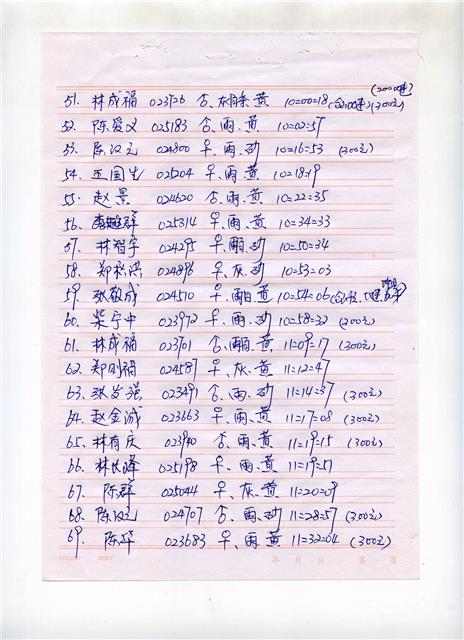 (2000键)
51. 林成福 023726 合、灰 黄 10=00=18 (300元)
52. 陈爱文 025183 合、雨、黄 10=02=57
53. 陈汉元 024800 早、雨、劲 10=16=53 (300元)
54. 王国生 025204 早、雨、黄 10=18=19
55. 赵景 024620 合、雨、黄 10=22=35
56. 群 025314 早、雨、黄 10=34=33
57. 林智宇 024295 早、雨、劲 10=50=34
58. 郑 024896 早、灰、劲 10=53=03
59. 张敬成 024510 早、雨白、黄 10=54=06
60. 柴宁中 023972 早、雨、劲 10=58=32 (300元)
61. 林成福 023701 合、雨、黄 11=09=17 (300元)
62. 郑刚福 024587 早、灰、黄 11=12=47
63. 张发强 023491 合、雨、劲 11=14=37 (300元)
64. 赵金诚 023663 早、雨、黄 11=17=08 (300元)
65. 林有庆 023940 合、雨、黄 11=19=15 (300元)
66. 林长峰 025198 早、雨、黄 11=19=57
67. 陈群 025044 早、灰、黄 11=20=09
68. 陈汉元 024707 合、雨、劲 11=28=57 (300元)
69. 陈华 023683 早、雨、黄 11=32=04 (300元)
年 月 日 第 页